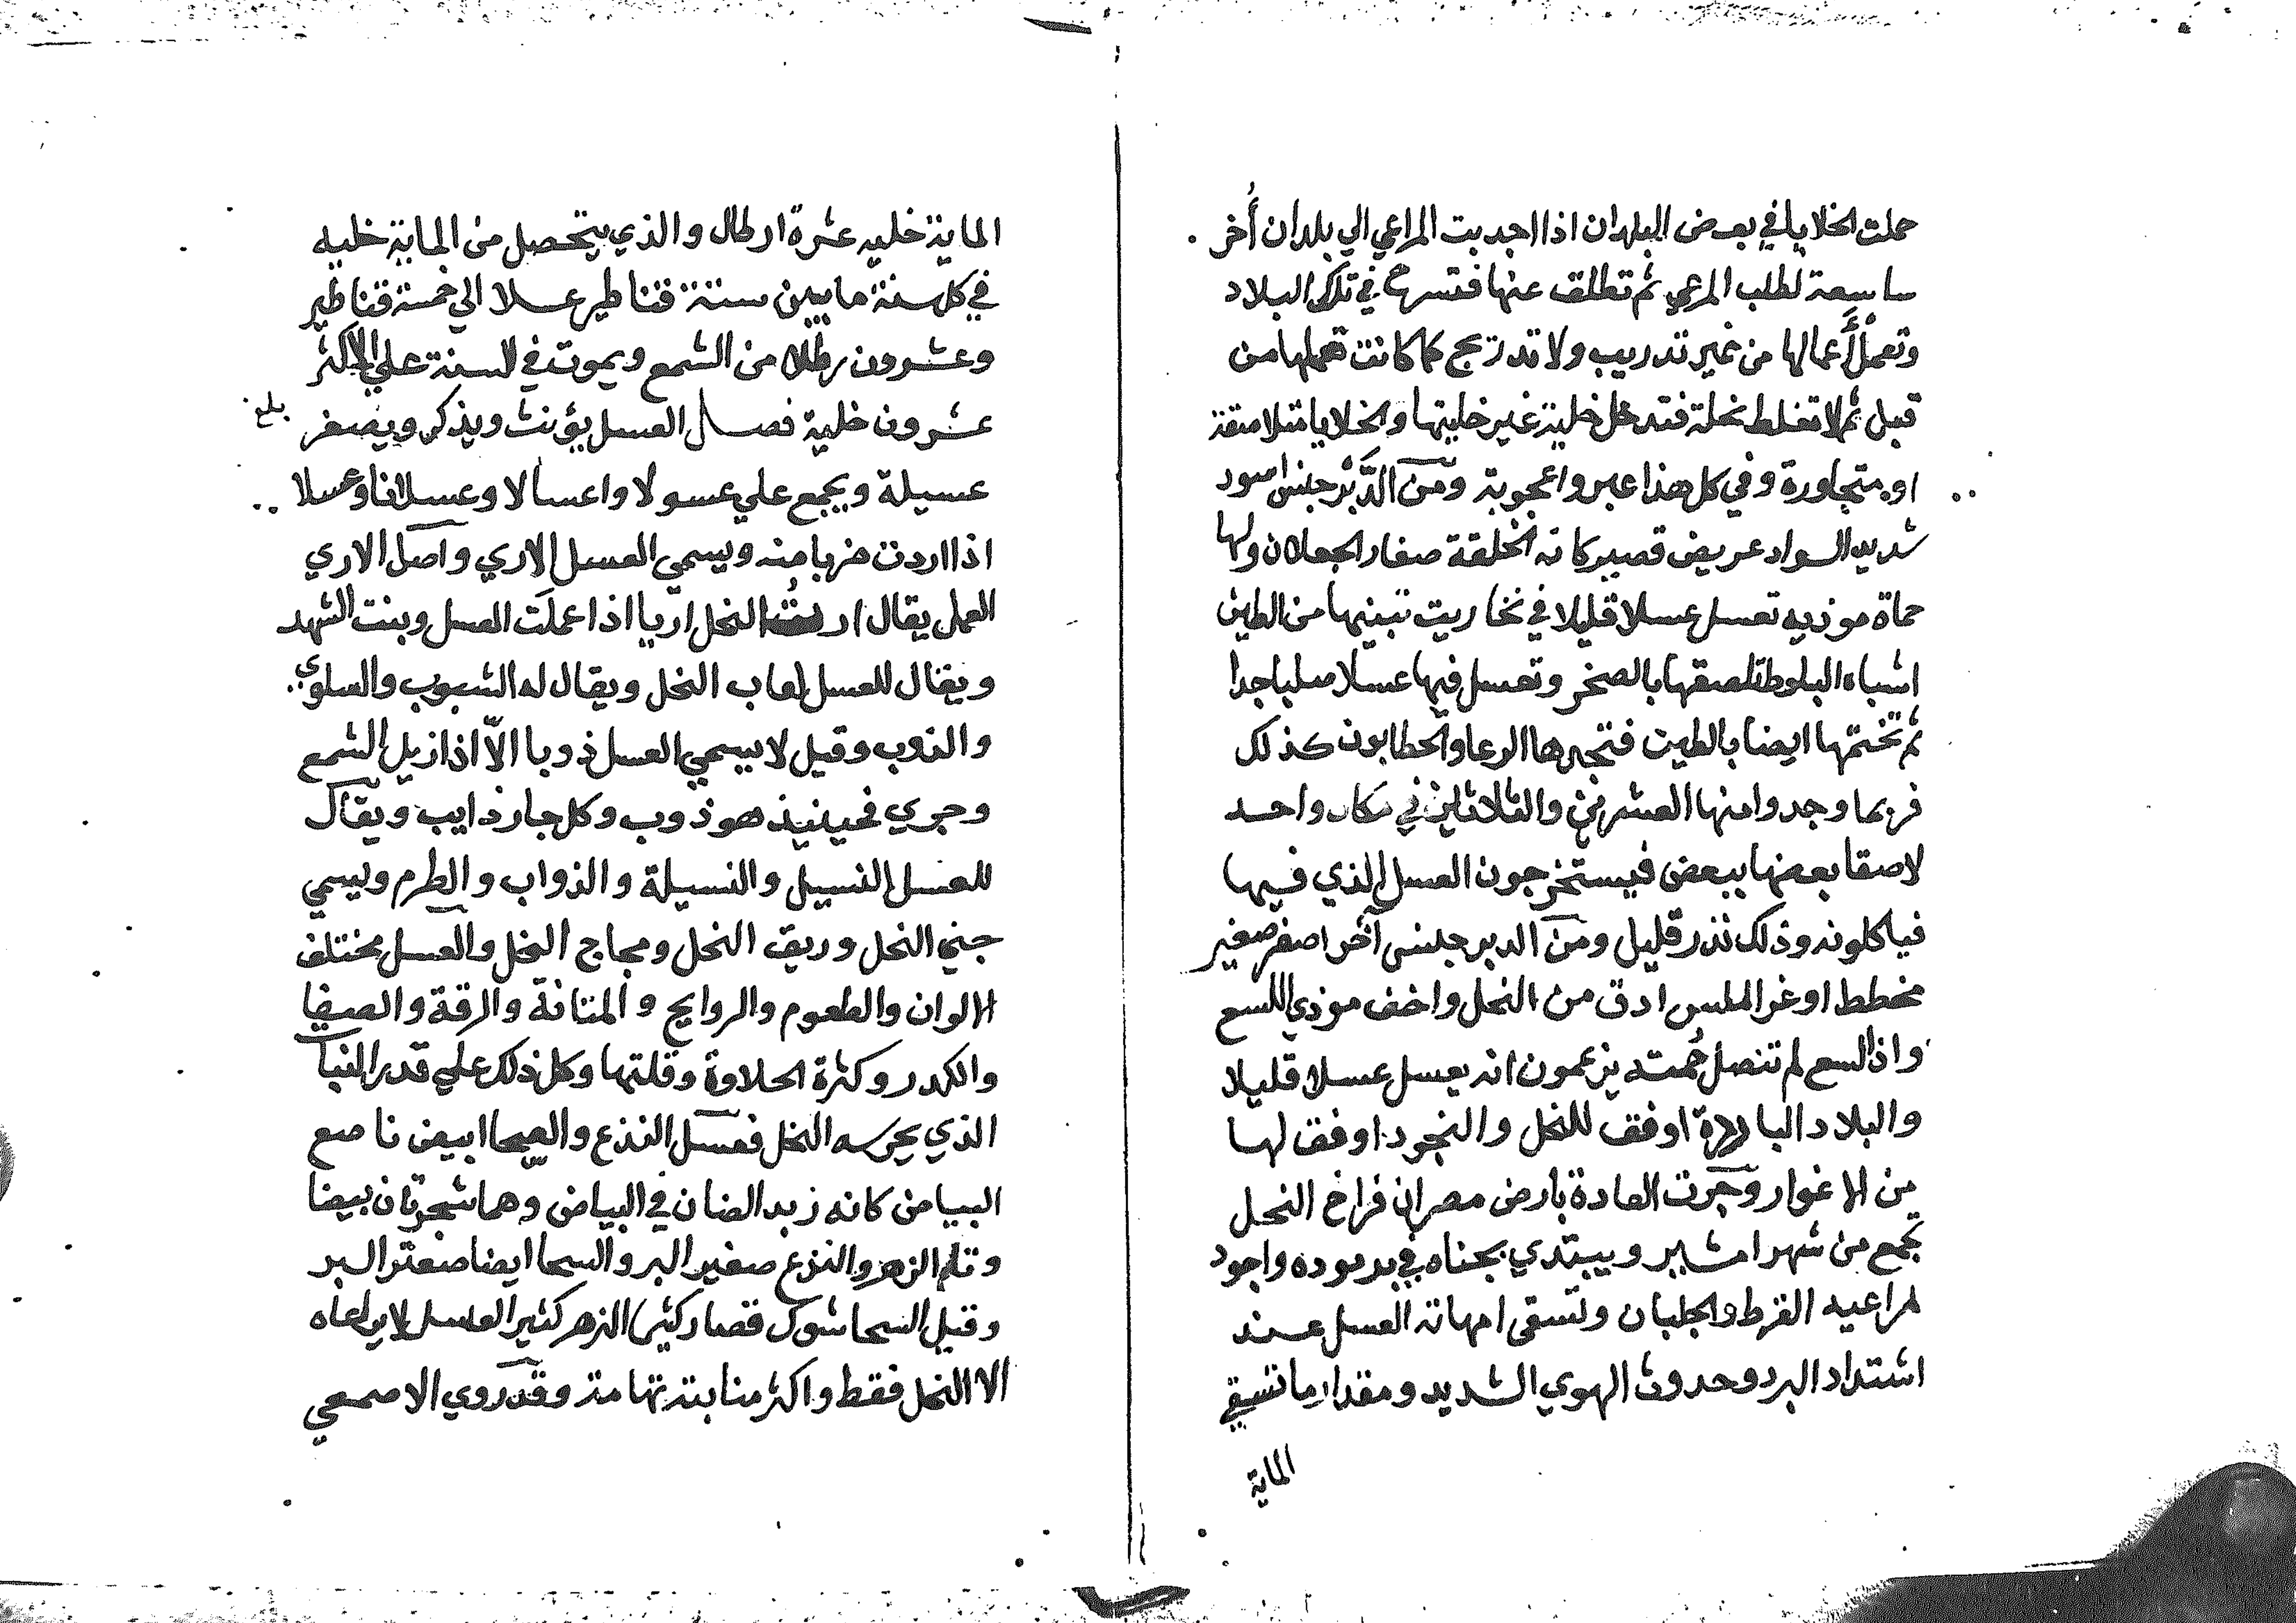 حملت الخلايا في بعض البلدان اذا اجدبت المراعي الي بلدان أُخر
ساسعة لطلب المرعي ثم تطلق عنها فتسرح في تلك البلاد
وتعمل أعمالها من غير تدريب ولا تدريج كما كانت تعملها من
قبل ثم لا تغلط نحلة فتدخل خلية غير خليتها والخلايا متلاصقة
او متجاورة وفي كل هذا عبر واعجوبة ومن الدَّبْر جنس اسود
شديد السواد عريض قصير كانه الخلقة صغار الجعلان ولها
حماة موذيه تعسل عسلا قليلا في نخاريت تبنيها من الطين
اشباه البلوط تلصقها بالصخر وتعسل فيها عسلا صلبا جدا
ثم تختمها ايضا بالطين فتجدها الرعا والحطابون كذلك
فربما وجدوا منها العشرين والثلاثين في مكان واحد
لاصقا بعضها ببعض فيستخرجون العسل الذي فيها
فياكلونه وذلك نذر قليل ومن الدبر جنس آخر اصفر صغير
مخطط اوغر الملس ادق من النحل واخف موذي اللسع
واذا لسع لم تنصل حُمته يزعمون انه يعسل عسلا قليلا
والبلاد الباردة اوفق للنحل والنجود اوفق لها
من الاغوار وجرت العادة بارض مصر ان فراخ النحل
تجمع من شهر امشير ويبتدي بجناه في برموده واجود
مراعيه القرط والجلبان وتسقى امهاته العسل عند
اشتداد البرد وحدوث الهوي الشديد ومقدار ما تسقي
الماية
الماية خليه عشرة ارطال والذي يتحصل من الماية خليه
في كل سنة ما بين ستة قناطير عسلا الي خمسة قناطير
وعشرون رطلا من الشمع ويموت في السنة علي الاكثر
عشرون خلية فصل العسل يؤنث ويذكر ويصغر
بلغ
عسيلة ويجمع علي عسولا واعسالا وعسلانا وعسلا
اذا اردت ضربا منه ويسمي العسل الاري واصل الاري
العمل يقال ارت النحل اريا اذا عملَت العسل وبنت الشهد
ويقال للعسل لعاب النحل ويقال له الشبوب والسلوي
والذوب وقيل لا يسمي العسل ذوبا الاّ اذا ازيل الشمع
وجري فحينيذ هو ذوب وكل جار ذايب ويقال
للعسل النسيل والنسيلة والذواب والطرم ويسمي
جني النحل وريق النحل ومجاج النحل والعسل مختلف
الالوان والطعوم والروايح والمتانة والرقة والصفا
والكدر وكثرة الحلاوة وقلتها وكل ذلك علي قدر النبا
الذي يجرسه النحل فعسل الندع والصحا ابيض ناصع
البياض كانه زبد الضان في البياض وهما شجرتان بيضا
وتا الزهر والندع صغير البر والسحا ايضا صعتر البر
وقيل السحا شوك قصار كثير الزهر كثير العسل لا يرعاه
الا النحل فقط واكثر منابته تهامة وقد روي الاصمعي